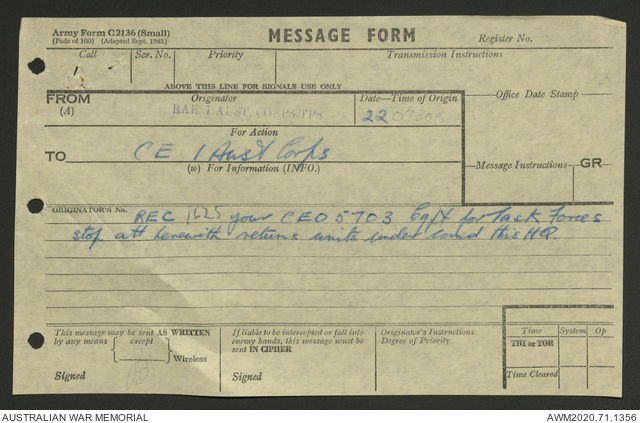 Army Form C2136 (Small)
(Pads of 100) (Adapted Sept. 1943)
MESSAGE FORM
Register No.
Call
Ser. No.
Priority
Transmission Instructions
ABOVE THIS LINE FOR SIGNALS USE ONLY
FROM
(A)
Originator
RAE 1 AUST. CORPS TPS
Date—Time of Origin
22 0930K
Office Date Stamp
For Action
TO
CE 1 Aust Corps
(w) For Information (INFO.)
Message Instructions
GR
ORIGINATOR'S No.
REC 1625 your CEO 5703 for Task Forces
stop att herewith returns units under comd this HQ.
This message may be sent AS WRITTEN
by any means except
Wireless
Signed
If liable to be intercepted or fall into
enemy hands, this message must be
sent IN CIPHER
Signed
Originator's Instructions
Degree of Priority
Time
System
Op
THI or TOR
Time Cleared
AUSTRALIAN WAR MEMORIAL
AWM2020.71.1356